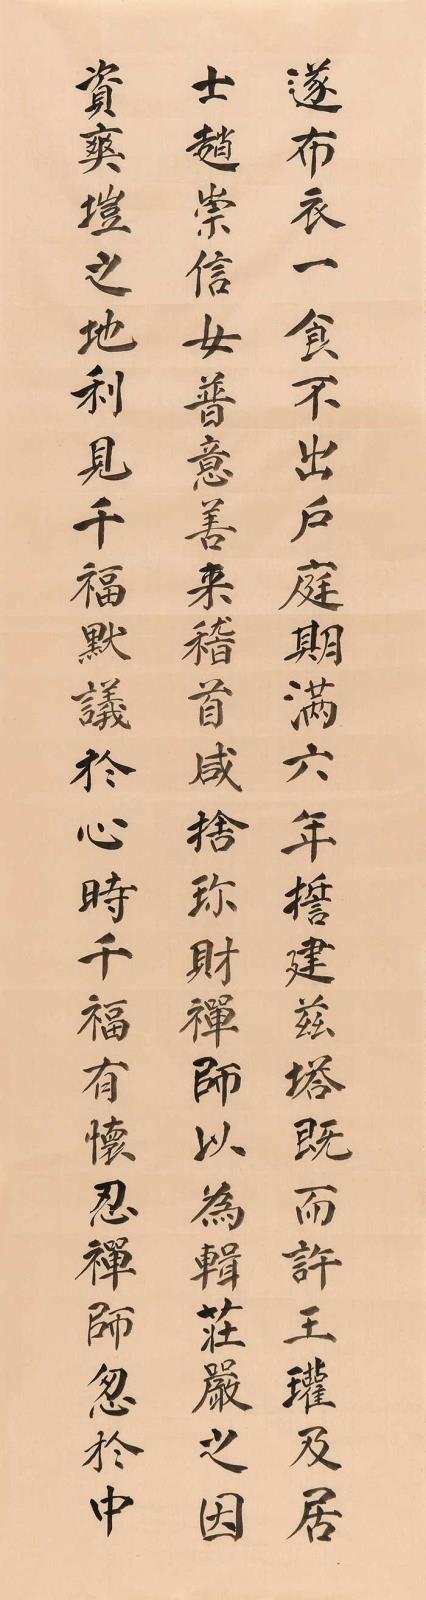 遂布衣一食不出戶庭期滿六年誓建茲塔既而許王瓘及居
士趙崇信女普意善来稽首咸捨珎財禪師以為輯莊嚴之因
資爽塏之地利見千福默議於心時千福有懷忍禪師忽於中